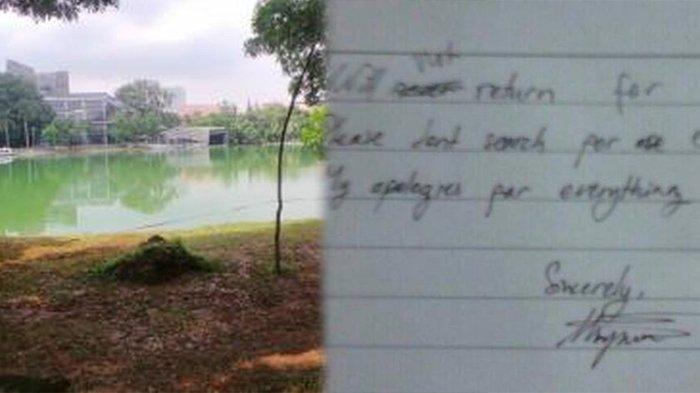 Will not return for
Please dont search for me
My apologies for everything
Sincerely,